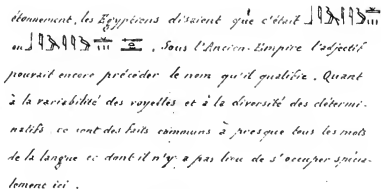 étonnement, les Egyptiens disaient que c'était
ou . Sous l'Ancien-Empire l'adjectif
pouvait encore précéder le nom qu'il qualifie. Quant
à la variabilité des voyelles et à la diversité des détermi-
natifs ce sont des faits communs à presque tous les mots
de la langue et dont il n'y a pas lieu de s'occuper spécia-
lement ici.